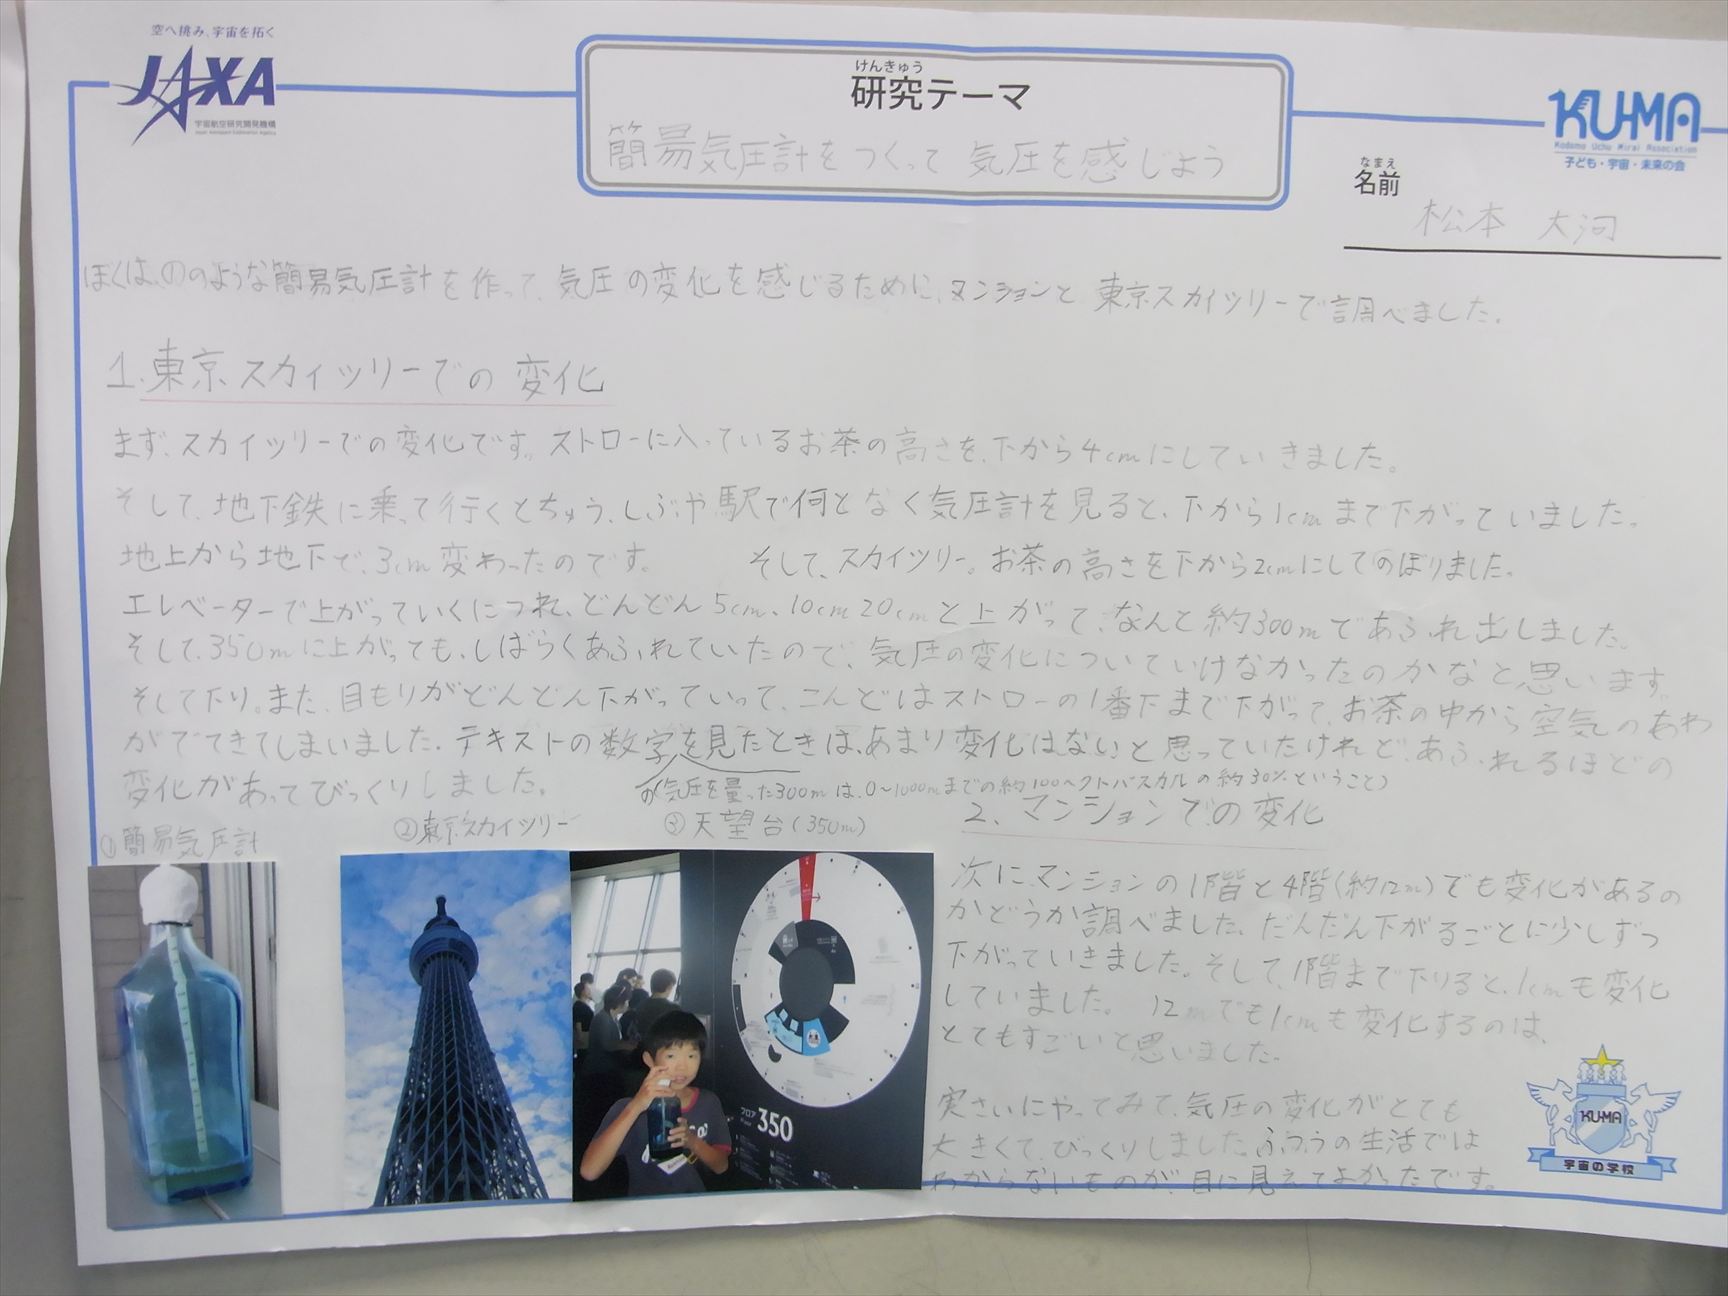 空へ挑み、宇宙を拓く
JAXA
宇宙航空研究開発機構
Japan Aerospace Exploration Agency
けんきゅう
研究テーマ
簡易気圧計をつくって 気圧を感じよう
KU-MA
Kodomo Uchu Mirai Association
子ども・宇宙・未来の会
なまえ
名前
松本 大河
ぼくは、①のような簡易気圧計を作って、気圧の変化を感じるために、マンションと 東京スカイツリーで調べました。
1.東京スカイツリーでの変化
まず、スカイツリーでの変化です。ストローに入っているお茶の高さを、下から4cmにしていきました。
そして、地下鉄に乗って行くとちゅう、しぶや駅で何となく気圧計を見ると、下から1cmまで下がっていました。
地上から地下で、3cm変わったのです。 そして、スカイツリー。お茶の高さを下から2cmにしてのぼりました。
エレベーターで上がっていくにつれ、どんどん5cm、10cm 20cmと上がって、なんと約300mであふれ出しました。
そして、350mに上がっても、しばらくあふれていたので、気圧の変化についていけなかったのかなと思います。
そして下り。また、目もりがどんどん下がっていって、こんどはストローの1番下まで下がって、お茶の中から空気のあわ
がでてきてしまいました。テキストの数字を見たときは、あまり変化はないと思っていたけれど、あふれるほどの
変化があってびっくりしました。
(気圧を量った300mは、0〜1000mまでの約100ヘクトパスカルの約30%ということ)
①簡易気圧計
②東京スカイツリー
③天望台(350m)
フロア 350
2.マンションでの変化
次に、マンションの1階と4階(約12m)でも変化があるの
かどうか調べました。だんだん下がるごとに少しずつ
下がっていきました。そして、1階まで下りると、1cmも変化
していました。 12mでも1cmも変化するのは、
とてもすごいと思いました。
実さいにやってみて、気圧の変化がとても
大きくて、びっくりしました。ふつうの生活では
わからないものが、目に見えてよかったです。
KU-MA
宇宙の学校